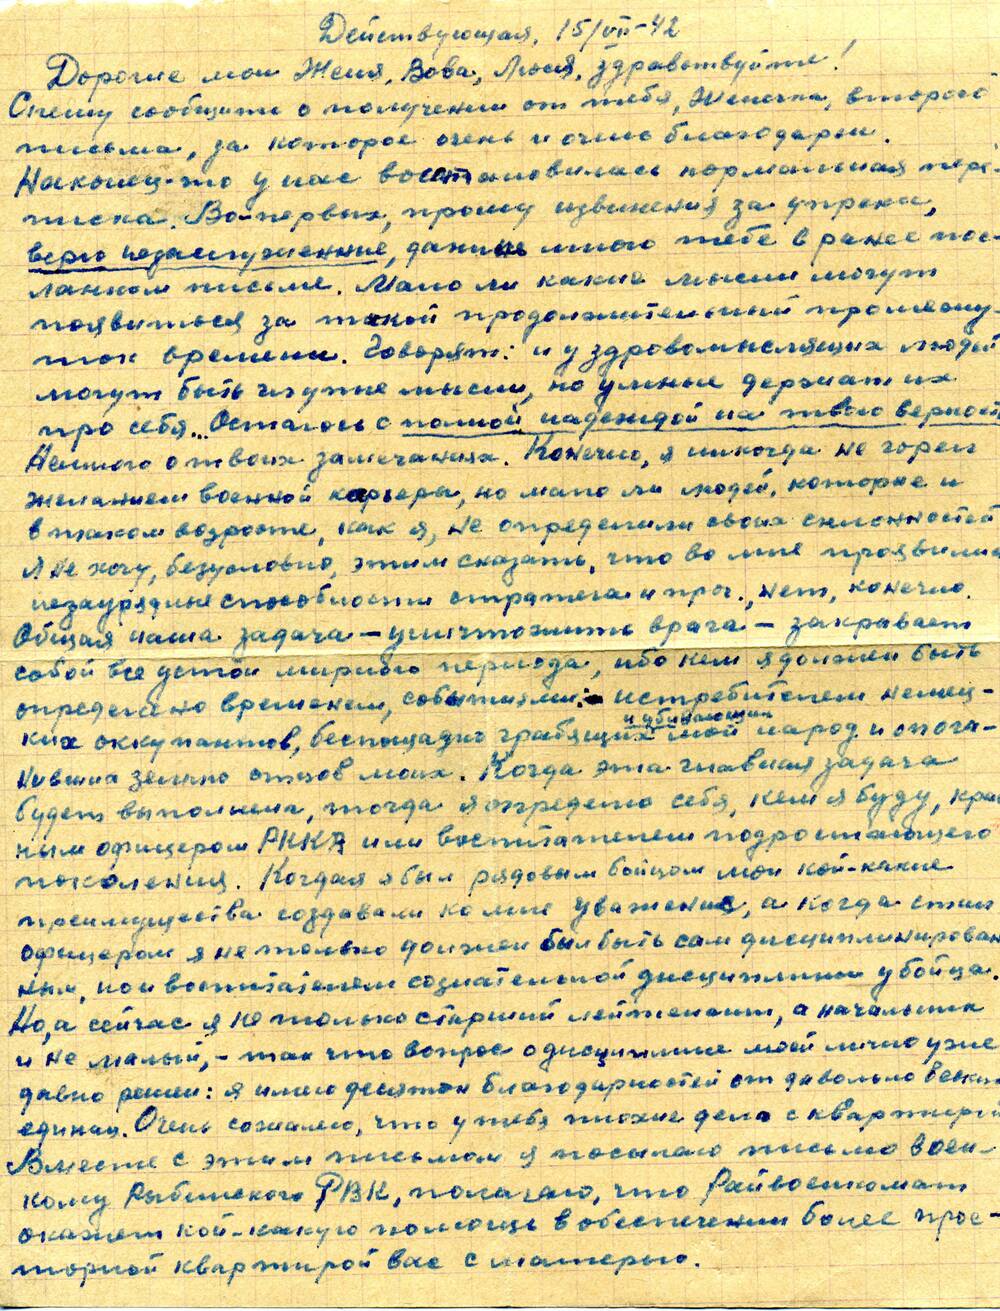 Действующая, 15/VII-42
Дорогие мои Женя, Вова, Люся, здравствуйте!
Спешу сообщить о получении от тебя, Женечка, второго
письма, за которое очень и очень благодарен.
Наконец-то у нас восстановилась нормальная пере-
писка. Во-первых, прошу извинения за упреки,
верю незаслуженные, данные мною тебе в ранее пос-
ланном письме. Мало ли какие мысли могут
появиться за такой продолжительный промежу-
ток времени. Говорят: и у здравомыслящих людей
могут быть глупые мысли, но умные держат их
про себя... Остаюсь с полной надеждой на твою верность
Немного о твоих замечаниях. Конечно, я никогда не горел
желанием военной карьеры, но мало ли людей, которые и
в таком возрасте, как я, не определили своих склонностей
Я не хочу, безусловно, этим сказать, что во мне проявились
незаурядные способности стратега и проч., нет, конечно.
Общая наша задача – уничтожить врага – закрывает
собой все устои мирного периода, ибо кем я должен быть
определено временем, событиями: истребителем немец-
ких оккупантов, беспощадно грабящих и убивающих мой народ и опога-
нивших землю отцов моих. Когда эта главная задача
будет выполнена, тогда я определю себя, кем я буду,
ным офицером РККА или воспитателем подростающего
поколения. Когда я был рядовым бойцом мои кой-какие
преимущества создавали ко мне уважение, а когда стал
офицером я не только должен был быть сам дисциплинирован-
ным, но и воспитателем сознательной дисциплины у бойца.
Но, а сейчас я не только старший лейтенант, а начальник
и не малый, – так что вопрос о дисциплине моей лично уже
давно решен: я имею десяток благодарностей от довольно
единиц. Очень сожалею, что у тебя плохие дела с квартирой
Вместе с этим письмом я посылаю письмо воен-
кому Рыбинского РВК, полагаю, что Райвоенкомат
окажет кой-какую помощь в обеспечении более прос-
торной квартирой вас с матерью.